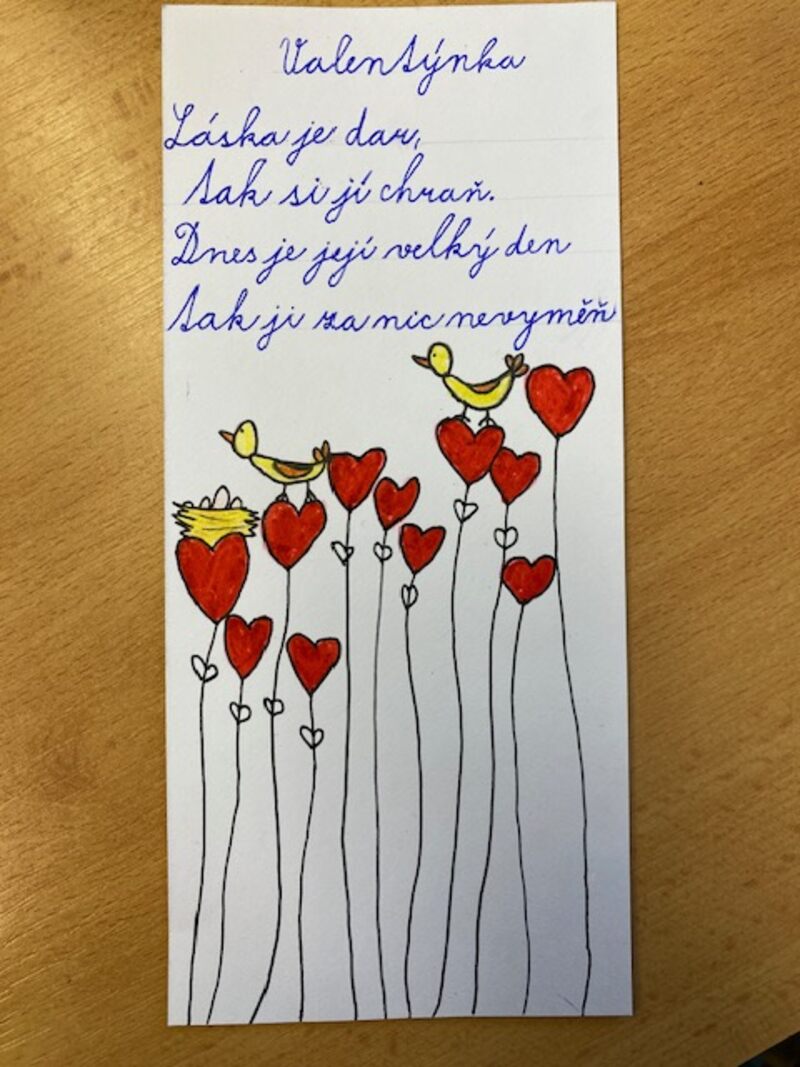 Valentýnka
Láska je dar,
tak si jí chraň.
Dnes je její velký den
tak ji za nic nevyměň